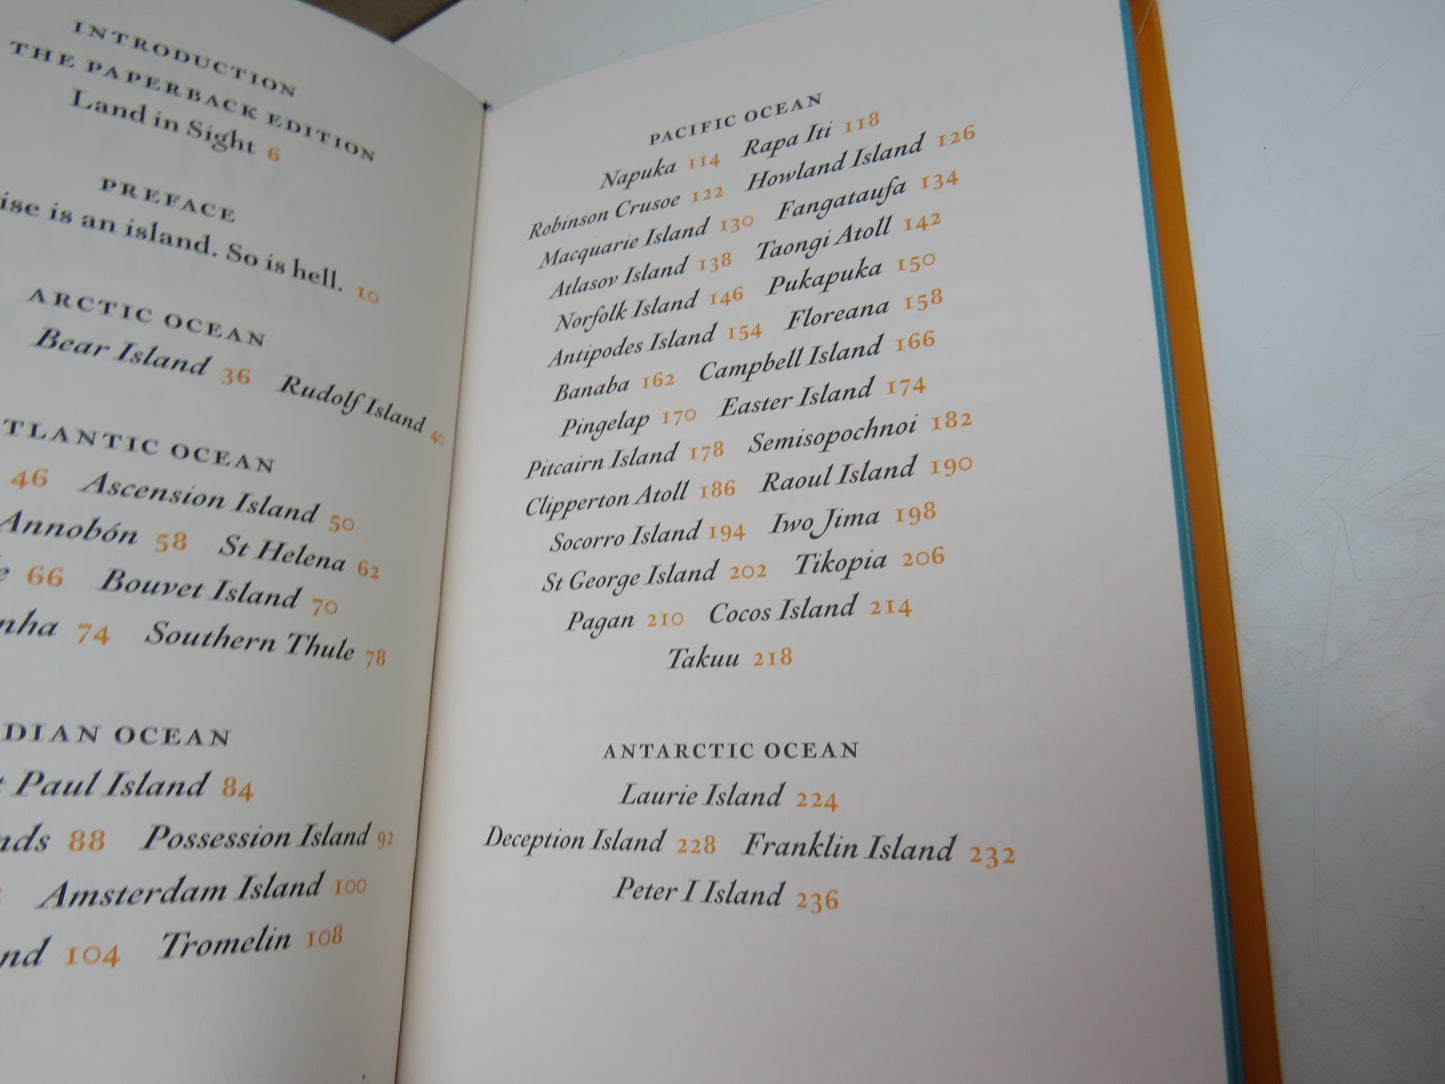 INTRODUCTION
THE PAPERBACK EDITION
Land in Sight 6
PREFACE
is an island. So is hell. 10
ARCTIC OCEAN
Bear Island 36 Rudolf Island 40
TLANTIC OCEAN
46 Ascension Island 50
Annobón 58 St Helena 62
66 Bouvet Island 70
nha 74 Southern Thule 78
DIAN OCEAN
Paul Island 84
nds 88 Possession Island 92
Amsterdam Island 100
nd 104 Tromelin 108
PACIFIC OCEAN
Napuka 114 Rapa Iti 118
Robinson Crusoe 122 Howland Island 126
Macquarie Island 130 Fangataufa 134
Atlasov Island 138 Taongi Atoll 142
Norfolk Island 146 Pukapuka 150
Antipodes Island 154 Floreana 158
Banaba 162 Campbell Island 166
Pingelap 170 Easter Island 174
Pitcairn Island 178 Semisopochnoi 182
Clipperton Atoll 186 Raoul Island 190
Socorro Island 194 Iwo Jima 198
St George Island 202 Tikopia 206
Pagan 210 Cocos Island 214
Takuu 218
ANTARCTIC OCEAN
Laurie Island 224
Deception Island 228 Franklin Island 232
Peter I Island 236